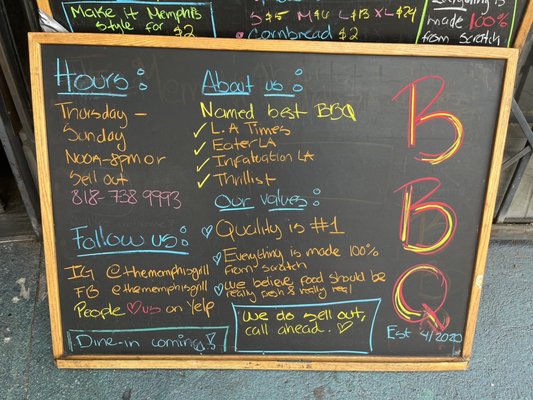 Make it Memphis
Style for $2
S $5 M $6 L $13 XL $24
Cornbread $2
Everything is
made 100%
from scratch
Hours:
Thursday -
Sunday
Noon-8pm or
Sell out
818-738-9993
Follow us:
IG @thememphisgrill
FB @thememphisgrill
People ♡ us on Yelp
Dine-in coming!
About us:
Named best BBQ
✓ L.A Times
✓ Eater LA
✓ Infatuation LA
✓ Thrillist
Our values:
♡ Quality is #1
♡ Everything is made 100%
from scratch
♡ We believe food should be
really fresh & really real!
We do sell out,
call ahead..♡
B
B
Q
Est 4/2020